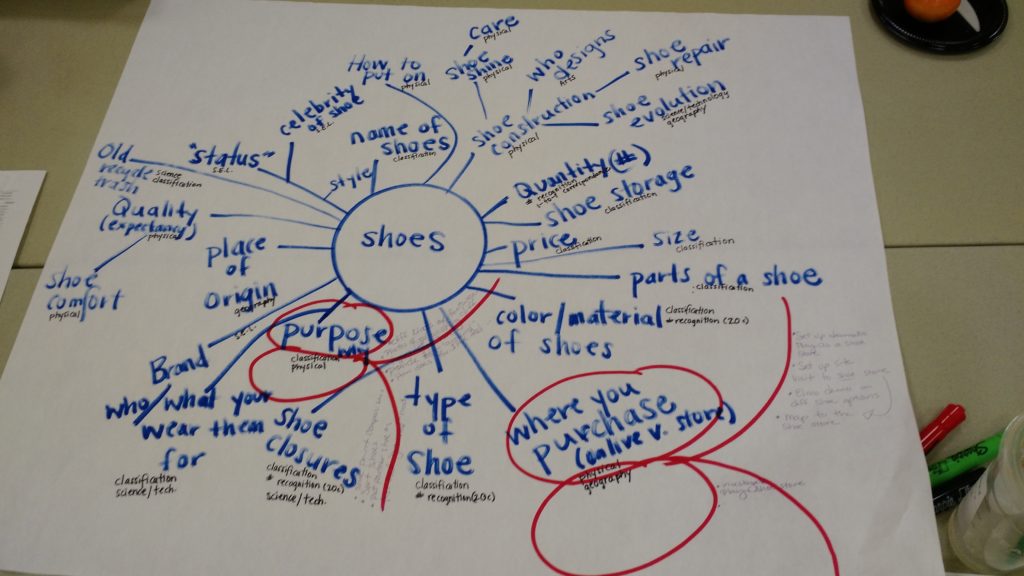 care
physical
shoe
shine
physical
How to
put on
physical
who
designs
Arts
shoe
repair
physical
celebrity
of shoe
S.E.L.
name of
shoes
classification
shoe
construction
physical
shoe
evolution
science/technology
geography
Old
recycle
trash
science
classification
"status"
S.E.L.
style
Quantity (#)
# recognition
1-to-1 correspondence
shoe
storage
classification
Quality
(expectancy)
physical
shoes
price
classification
size
classification
place
of
origin
geography
parts of a shoe
classification
shoe
comfort
physical
S.E.L.
purpose
classification
physical
color/material
of shoes
classification
# recognition (20c)
Brand
who what your
wear them
for
classification
science/tech.
shoe
closures
classification
# recognition (20c)
science/tech.
type
of
shoe
classification
# recognition (20c)
where you
purchase
(online v. store)
physical
geography